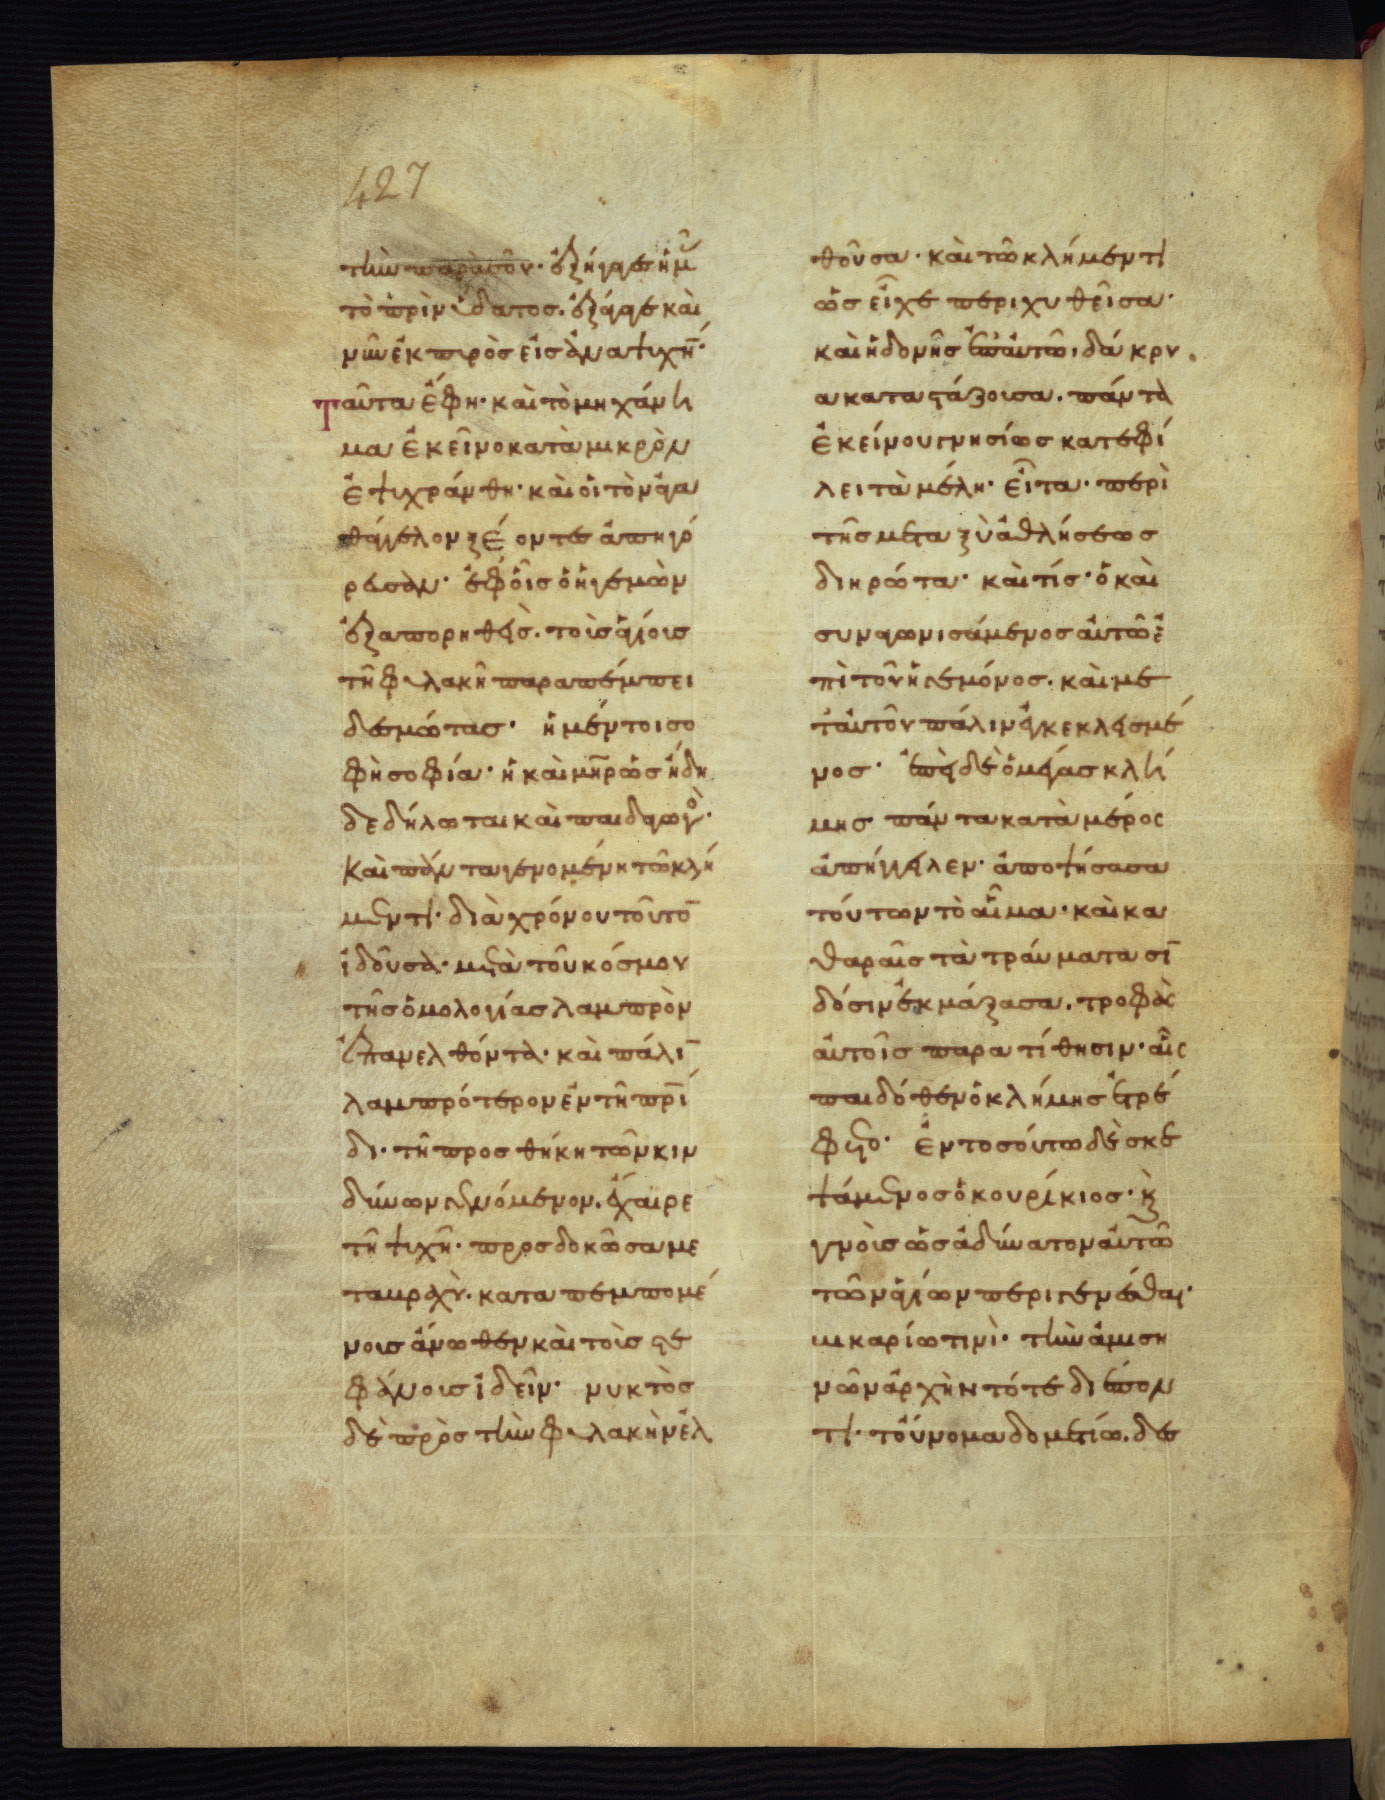 427
τὴν παρὰ σοῦ· ἐξήγαγε ἡμῖ
τὸ πρὶν ὕδατος· ἐξάγαγε καὶ
νῦν ἐκ πυρὸς εἰς ἀναψυχήν·
Ταῦτα ἔφη· καὶ τὸ μηχάνη
μα ἐκεῖνο κατὰ μικρὸν
ἐψυχράνθη· καὶ οἱ τὸν ἀγα
θάγγελον ζέοντες ἀπηγό
ρευσαν· ἐφ οἷς ὁ ἡγεμὼν
ἐξαπορηθεὶς· τοὺς ἁγίους
τῆ φυλακῆ παραπέμπει
δεσμώτας· ἡ μέντοι σο
φὴ σοφία· ἣ καὶ μηρ ὡς ἤδη
δεδήλωται καὶ παιδαγωγὸ·
καὶ πάντα γενομένη τῶ κλή
μεντι· διὰ χρόνου τοῦτο
ἰδοῦσα· μετὰ τοῦ κόσμου
τῆς ὁμολογίας λαμπρὸν
ἐπανελθόντα· καὶ πάλι
λαμπρότερον ἐν τῆ πρί
δι· τῆ προσθήκη τῶν κιν
δύνων γενόμενον· ἔχαιρε
τῆ ψυχῆ· προσδοκῶσα με
ταυρχὺ· καταπεμπομέ
νοις ἄνωθεν καὶ τοὺς στε
φάνους ἰδεῖν· νυκτὸς
δὲ πρὸς τὴν φυλακὴν ἐλ
θοῦσα· καὶ τῶ κλήμεντι
ὡς εἶχε περιχυθεῖσα·
καὶ ἡδονῆς ἐπ αὐτῶ, δάκρυ
α καταστάζουσα· πάντα
ἐκείνου γνησίως κατεφί
λει τὰ μέλη· εἶτα· περὶ
τῆς μεταξὺ ἀθλήσεως
διηρώτα· καὶ τίς· ὁ καὶ
συναγωνισάμενος αὐτῶ ἐ
πὶ τοῦ ἡγεμόνος· καὶ με
τ αὐτοῦ πάλιν ἐγκεκλεισμέ
νος· ἐπεὶ δὲ ὁ μέγας κλή
μης πάντα κατὰ μέρος
ἀπήγγειλεν· ἀποψήσασα
τούτων τὸ αἷμα· καὶ κα
θαραῖς τὰ τραύματα σι
δόσιν ἐκμάξασα· τροφὰς
αὐτοῖς παρατίθησιν· αἷς
παιδόθεν ὁ κλήμης ἐτρέ
φετο· Ἐν τοσούτω δὲ σκε
ψάμενος ὁ κουρίκιος· κ
γνοὺς ὡς ἀδύνατον αὐτῶ
τῶν ἁγίων περιγενέσθαι·
μικαρίω τινὶ· τὴν ἀμιση
νῶν ἀρχὴν τότε διέπον
τι· τοὔνομα δομετίω· δε